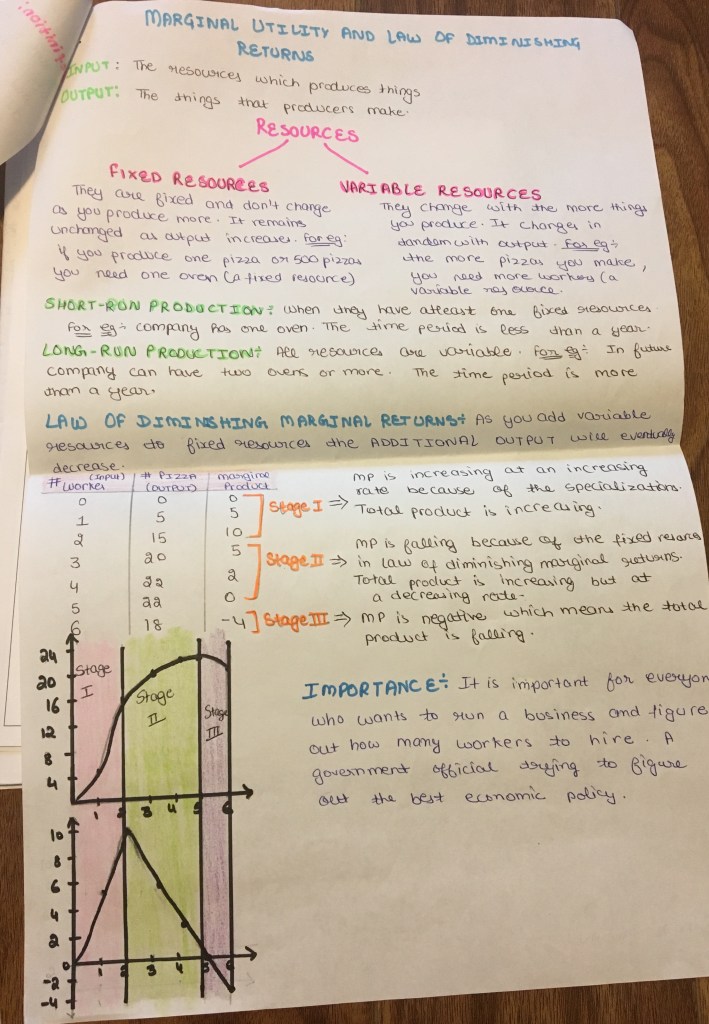 MARGINAL UTILITY AND LAW OF DIMINISHING
RETURNS
INPUT: The resources which produces things
OUTPUT: The things that producers make.
RESOURCES
FIXED RESOURCES
They are fixed and don't change
as you produce more. It remains
unchanged as output increases. For eg:
if you produce one pizza or 500 pizzas
you need one oven (a fixed resource)
VARIABLE RESOURCES
They change with the more things
you produce. It changes in
tandem with output. For eg:-
the more pizzas you make,
you need more workers (a
variable resource.
SHORT-RUN PRODUCTION:- when they have atleast one fixed resources.
For eg:- company has one oven. The time period is less than a year.
LONG-RUN PRODUCTION:- All resources are variable. For eg:- In future
company can have two ovens or more. The time period is more
than a year.
LAW OF DIMINISHING MARGINAL RETURNS:- As you add variable
resources to fixed resources the ADDITIONAL OUTPUT will eventually
decrease.
# Worker (Input) # PIZZA (OUTPUT) marginal Product
0 0 0
1 5 5
2 15 10
3 20 5
4 22 2
5 22 0
6 18 -4
Stage I => MP is increasing at an increasing
rate because of the specialization.
Total product is increasing.
Stage II => MP is falling because of the fixed resources
in law of diminishing marginal returns.
Total product is increasing but at
a decreasing rate.
Stage III => MP is negative which means the total
product is falling.
24
20
16
12
8
4
Stage I
Stage II
Stage III
1 2 3 4 5 6
10
8
6
4
2
0
-2
-4
1 2 3 4 5 6
IMPORTANCE:- It is important for everyon
who wants to run a business and figure
out how many workers to hire. A
government official trying to figure
out the best economic policy.